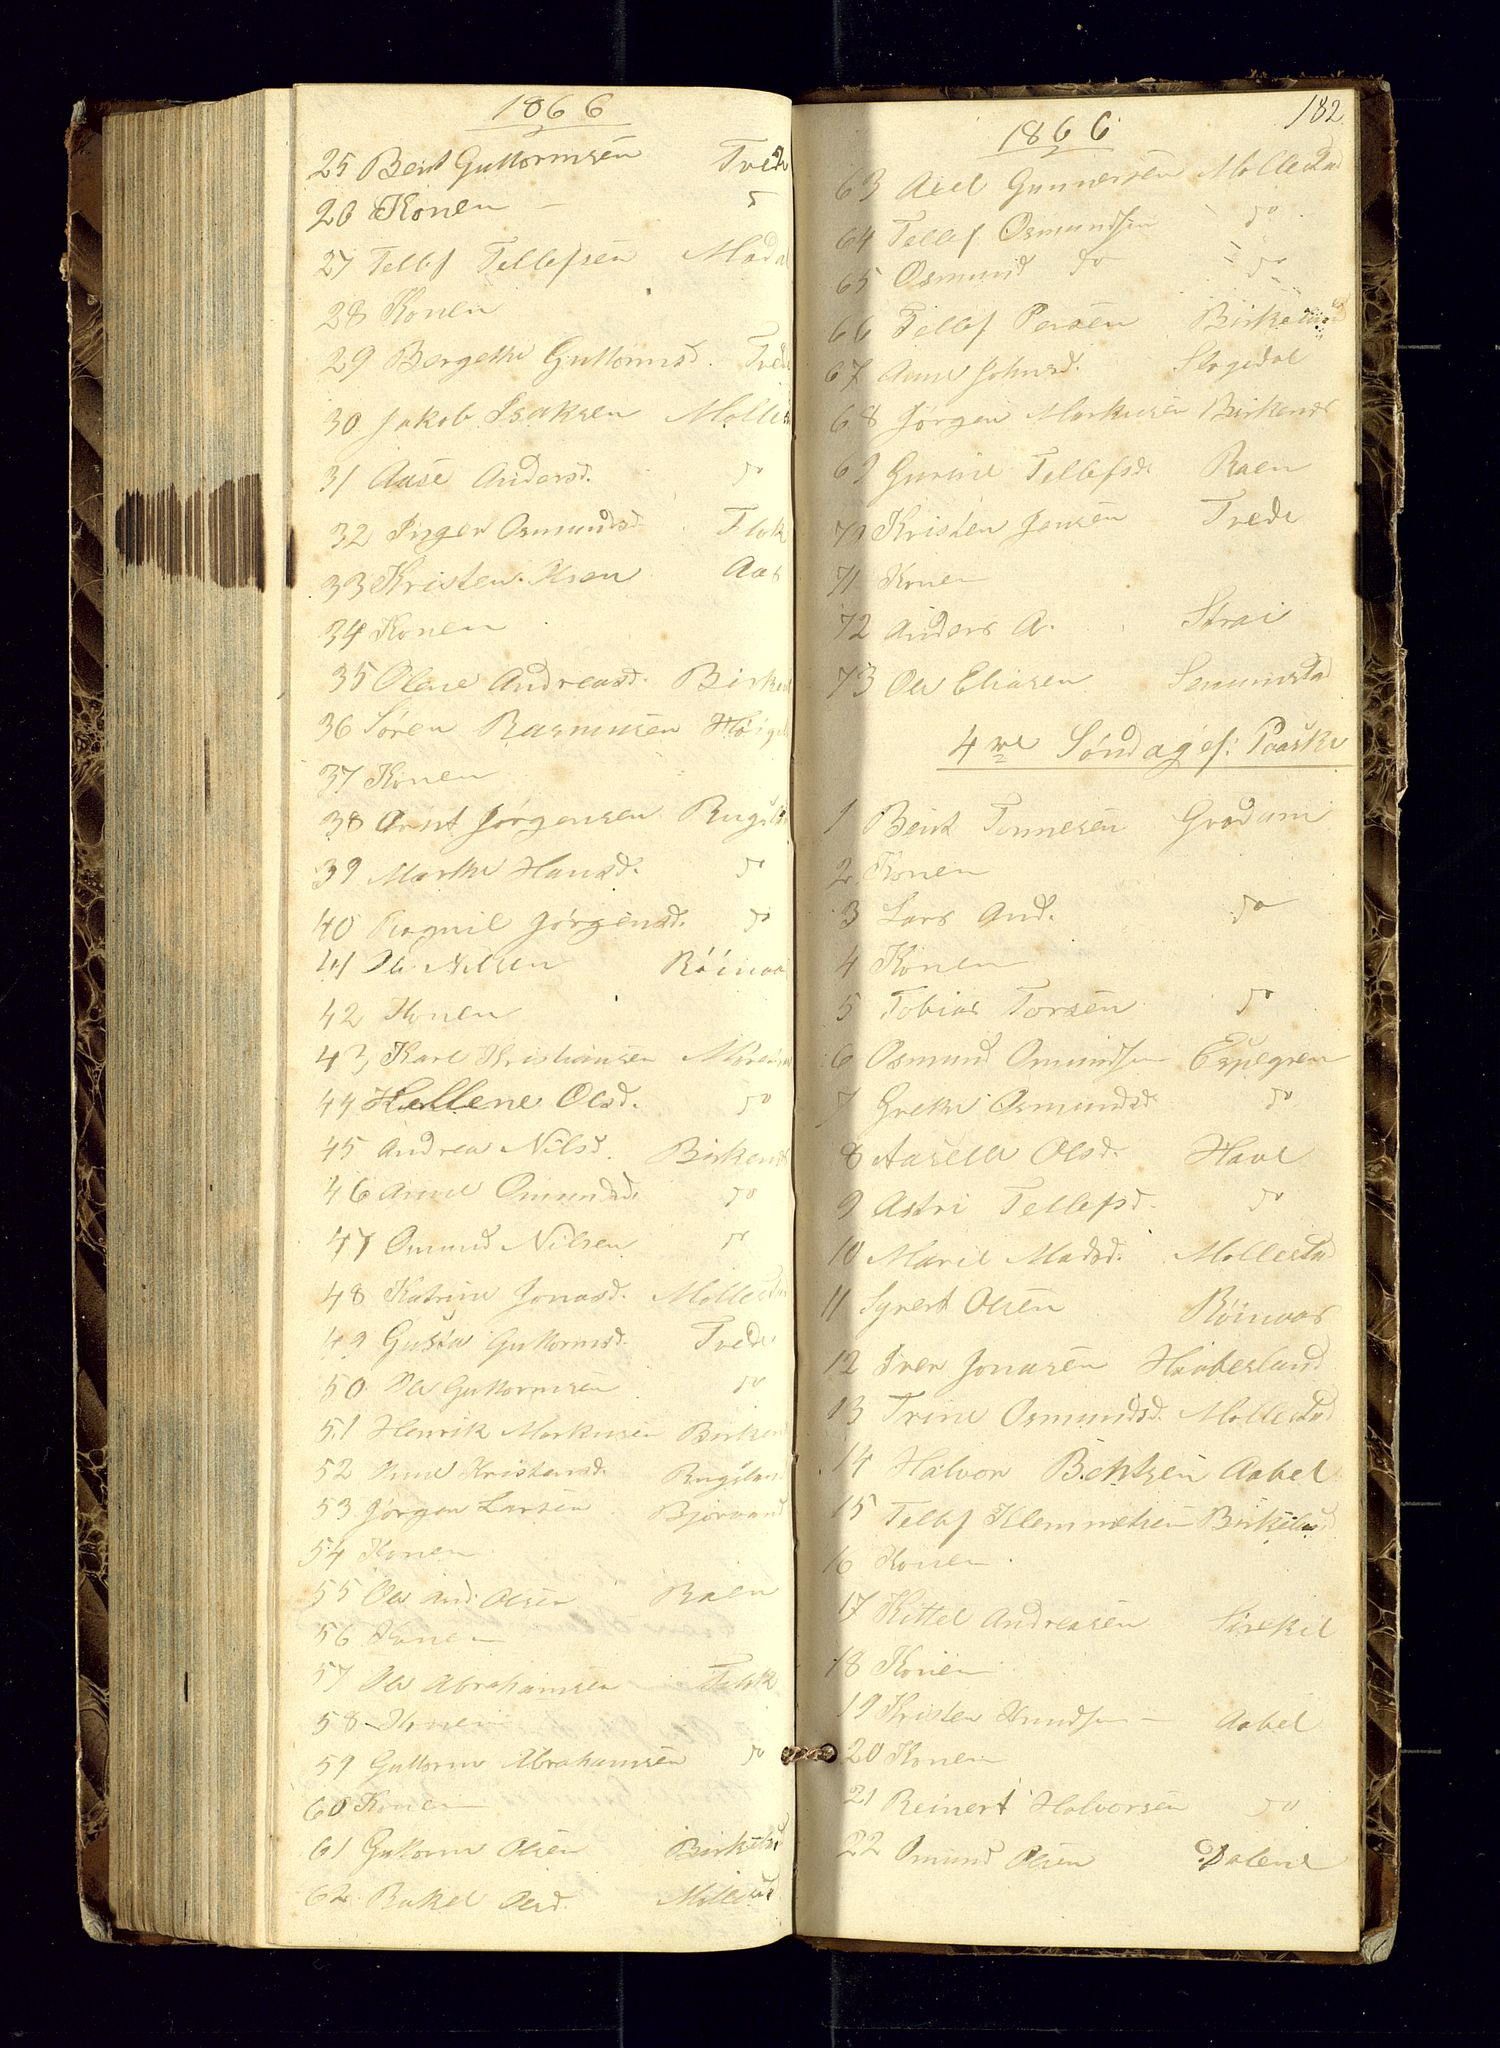 1866
25 Bent Guttormsen Trede
26 Konen - do
27 Tellef Tellefsen Modal
28 Konen
29 Bergethe Guttormsd. Trede
30 Jakob Isaksen Molles
31 Aase Andersd. do
32 Inger Osmundsd. Flak
33 Kristen Aasen Aas
34 Konen
35 Olene Andreasd. Birken
36 Søren Rasmusen Høige
37 Konen
38 Ornt Jørgensen Rugsla
39 Marthe Hansd. do
40 Ragnil Jørgensd. do
41 Ole Nilsen Röinaa
42 Konen
43 Karl Kristiansen
44 Hellene Olsd. do
45 Andrea Nilsd. Birkenes
46 Anne Omundsd. do
47 Omund Nilsen do
48 Katrine Jonasd. Mollestad
49 Gusta Guttormsd. Trede
50 Ole Guttormsen do
51 Henrik Markusen Birken
52 Anne Kristensd. Rugslan
53 Jørgen Larsen Bjorvand
54 Konen
55 Ole And. Olsen Raen
56 Konen
57 Ole Abrahamsen Flak
58 Konen
59 Guttorm Abrahamsen do
60 Konen
61 Guttorm Olsen Birkelnd
62 Rakel Olsd. Mollestad
182
1866
63 Axel Gunnersen Mollestad
64 Tellef Osmundsen do
65 Osmund do do
66 Tellef Persen Birkelund
67 Anne Johnsd. Stogedal
68 Jørgen Markusen Birkenes
69 Gurine Tellefsd. Raen
70 Kristen Jensen Trede
71 Konen
72 Anders A. Strai
73 Ole Eliasen Senumstad
4de Søndag ef: Paaske
1 Bent Tonnesen Grødum
2 Konen
3 Lars And. do
4 Konen
5 Tobias Torsen do
6 Osmund Omundsen Espegren
7 Grethe Osmundsd. do
8 Aaselle Olsd. Have
9 Astri Tellefsd. do
10 Marie Madsd. Mollestad
11 Syvert Olsen Röinaas
12 Iver Jonasen Haabesland
13 Trine Osmundsd. Mollestad
14 Halvor Bentsen Aabel
15 Tellef Klemmetsen Birkelund
16 Konen
17 Kittel Andreasen Sirekil
18 Konen
19 Kristen Knudsen - Aabel
20 Konen
21 Reinert Halvorsen do
22 Omund Olsen Dalene